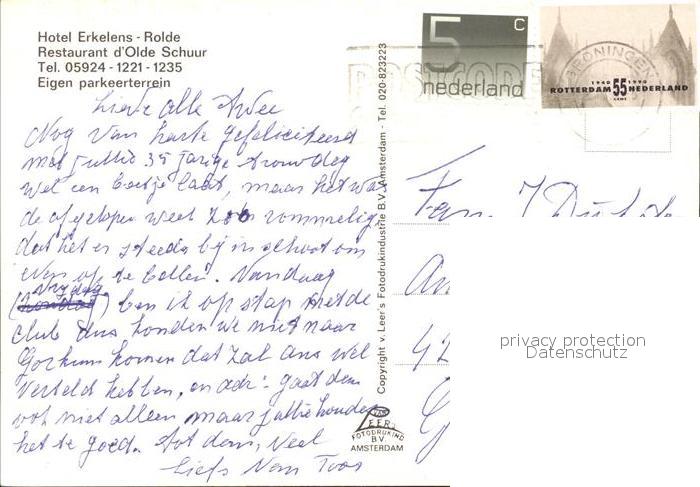 Hotel Erkelens - Rolde
Restaurant d'Olde Schuur
Tel. 05924 - 1221 - 1235
Eigen parkeerterrein
Lieve alle twee
Nog van harte gefeliciteerd
met jullie 35 jarige trouwdag
wel een beetje laat, maar het was
de afgelopen week zoo rommelig
dat het er steeds bij in schoot om
even op te bellen. Vandaag
(vrijdag) ben ik op stap met de
club dus konden we niet naar
Gorkum komen dat zal Ans wel
verteld hebben, en adr: gaat dan
ook niet alleen maar jullie houden
het te goed. tot dan, veel
liefs van Toos
Copyright v. Leer's Fotodrukindustrie B.V. Amsterdam - Tel. 020-823223
VAN
LEER'S
FOTODRUKIND
B.V.
AMSTERDAM
5 c
nederland
POSTCODE
GRONINGEN
1940 55 1990
ROTTERDAM NEDERLAND
CENT
Fam.
42
G
privacy protection
Datenschutz